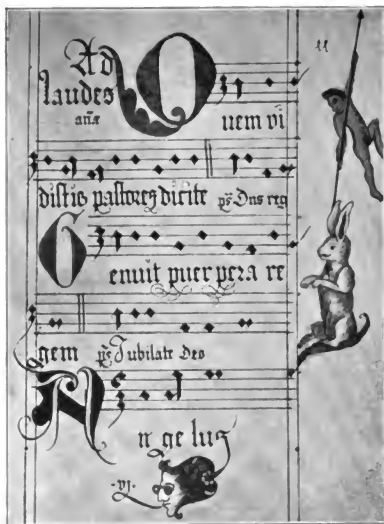 Ad
laudes
añæ
Quem vi
distis pastores dicite ps̄ Dns reg
Genuit puerpera re
gem ps̄ Jubilate deo
Angelus
·vj·